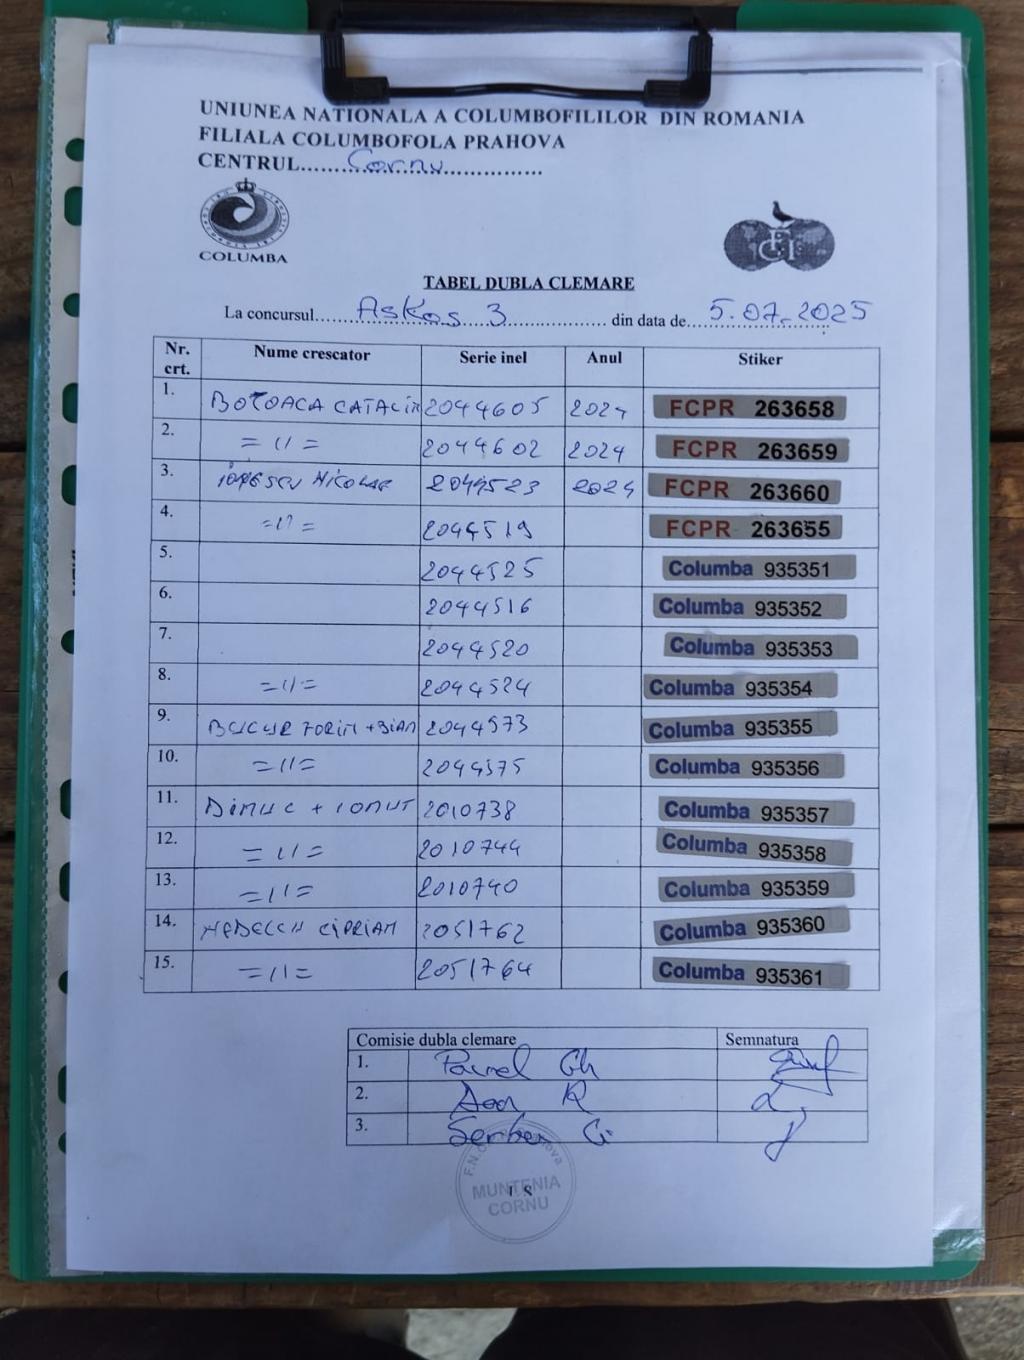 UNIUNEA NATIONALA A COLUMBOFILILOR DIN ROMANIA
FILIALA COLUMBOFOLA PRAHOVA
CENTRUL.....Cornu.....
COLUMBA
FCI
TABEL DUBLA CLEMARE
La concursul.....Askos 3..... din data de.....5.07.2025
Nr. crt. Nume crescator Serie inel Anul Stiker
1. BOTOACA CATALIN 2044605 2024 FCPR 263658
2. = 11 = 2044602 2024 FCPR 263659
3. NICOLAE 2044523 2024 FCPR 263660
4. = 11 = 2044519 FCPR 263655
5. 2044525 Columba 935351
6. 2044516 Columba 935352
7. 2044520 Columba 935353
8. = 11 = 2044524 Columba 935354
9. BUCUR FORIN + BIAN 2044573 Columba 935355
10. = 11 = 2044575 Columba 935356
11. DINU C + IONUT 2010738 Columba 935357
12. = 11 = 2010744 Columba 935358
13. = 11 = 2010740 Columba 935359
14. NEDELCU CIPRIAN 2051762 Columba 935360
15. = 11 = 2051764 Columba 935361
Comisie dubla clemare Semnatura
1. Pavel Gh
2. R
3. Serban G
MUNTENIA
CORNU